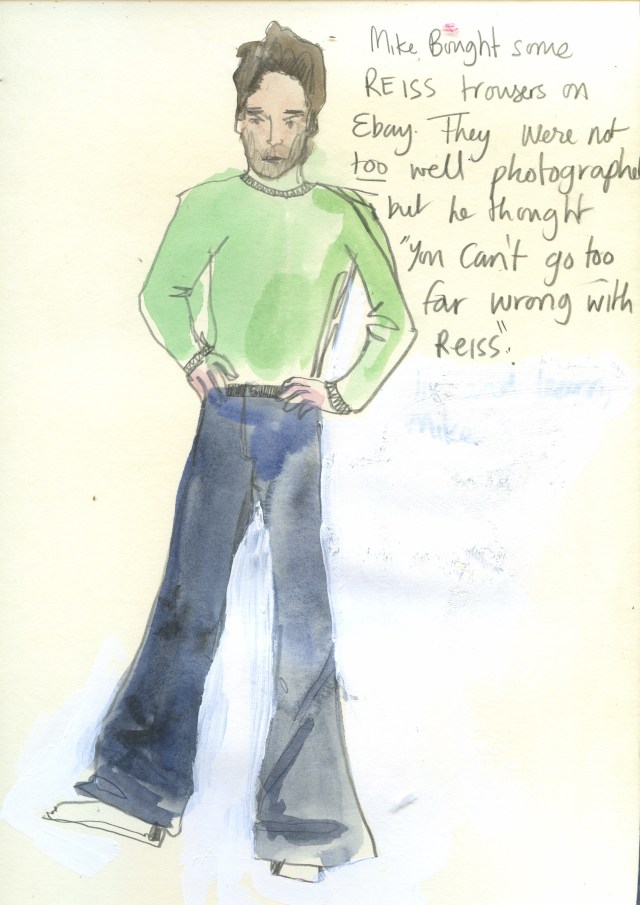 Mike Bought some
REISS trousers on
Ebay. They were not
too well photographed
but he thought
"You Can't go too
far wrong with
Reiss".
learn,
Mike.